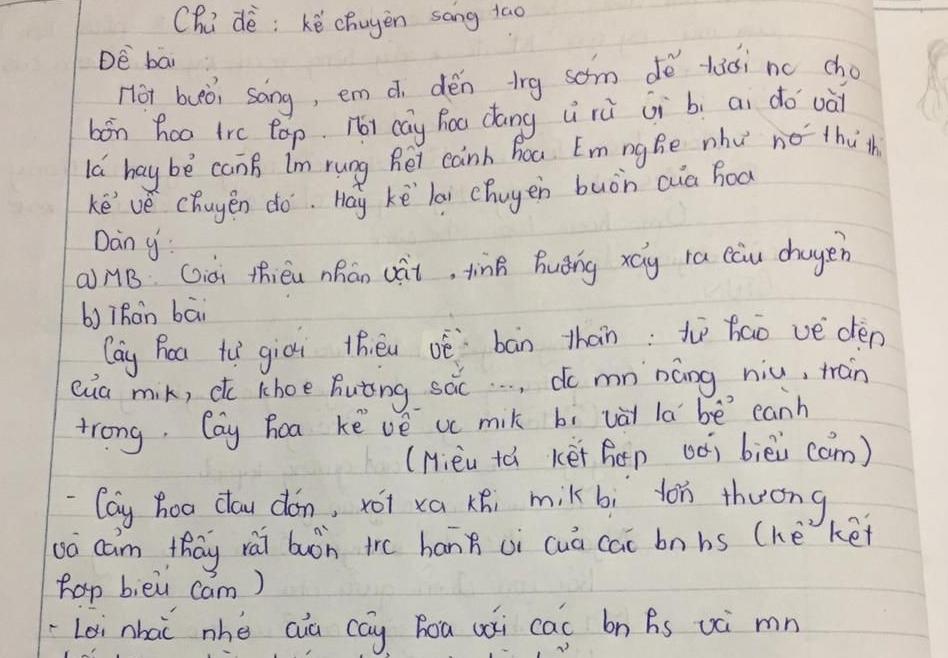 Chủ đề : kể chuyện sáng tạo
Đề bài :
Một buổi sáng, em đi đến trg sớm để tưới nc cho
bồn hoa trc lớp. Một cây hoa đang ủ rũ vì bị ai đó vặt
lá hay bẻ cành lm rụng hết cánh hoa. Em nghe như nó thủ th
kể về chuyện đó. Hãy kể lại chuyện buồn của hoa
Dàn ý:
a) MB: Giới thiệu nhân vật, tình huống xảy ra câu chuyện
b) Thân bài
Cây hoa tự giới thiệu về bản thân : tự hào vẻ đẹp
của mik, đc khoe hương sắc ..., đc mn nâng niu, trân
trọng. Cây hoa kể về vc mik bị vặt lá bẻ cành
(Miêu tả kết hợp với biểu cảm)
- Cây hoa đau đớn, xót xa khi mik bị tổn thương
và cảm thấy rất buồn trc hành vi của các bn hs (kể kết
hợp biểu cảm)
- Lời nhắc nhẻ của cây hoa với các bn hs và mn